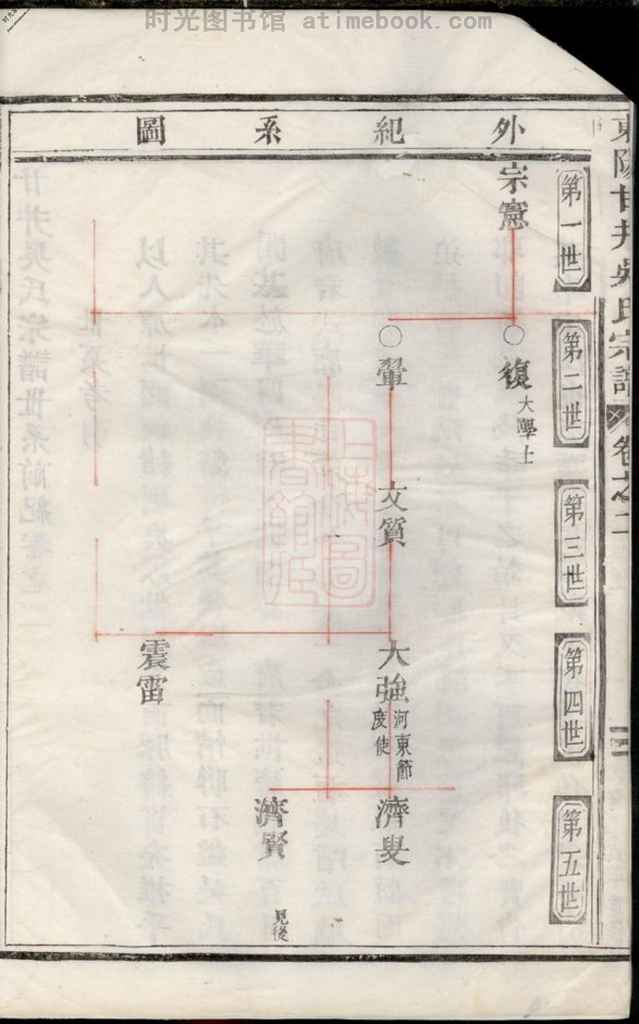 时光图书馆 atimebook.com
東陽甘井吳氏宗譜 卷之二
外紀系圖
第一世
第二世
第三世
第四世
第五世
宗憲
復 大學士
翬
文質
大強 河東節度使
震雷
濟叟
濟賢 見後